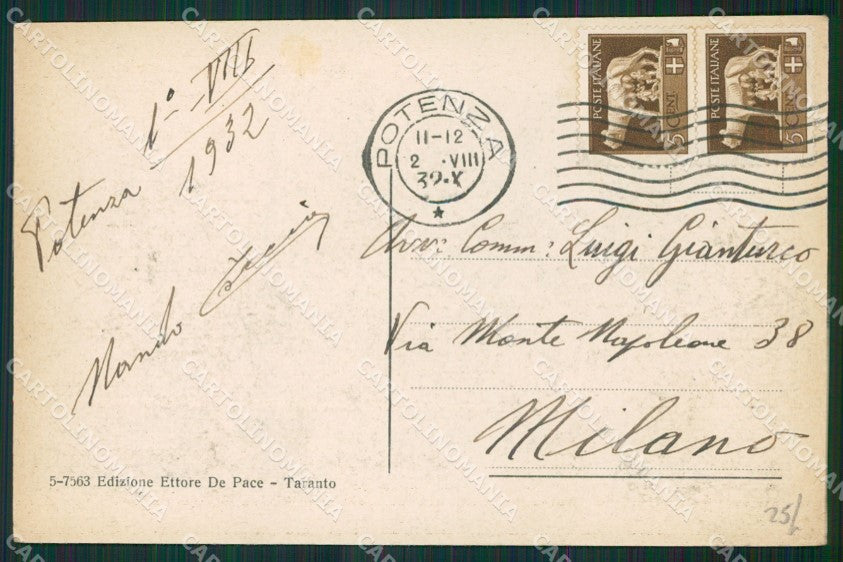 Potenza 1° VIII
1932
POTENZA
11-12
2 . VIII
32·X
POSTE ITALIANE
5 CENT
POSTE ITALIANE
5 CENT
Avv: Comm: Luigi Gianturco
Via Monte Napoleone 38
Milano
5-7563 Edizione Ettore De Pace - Taranto
25/
CARTOLINOMANIA